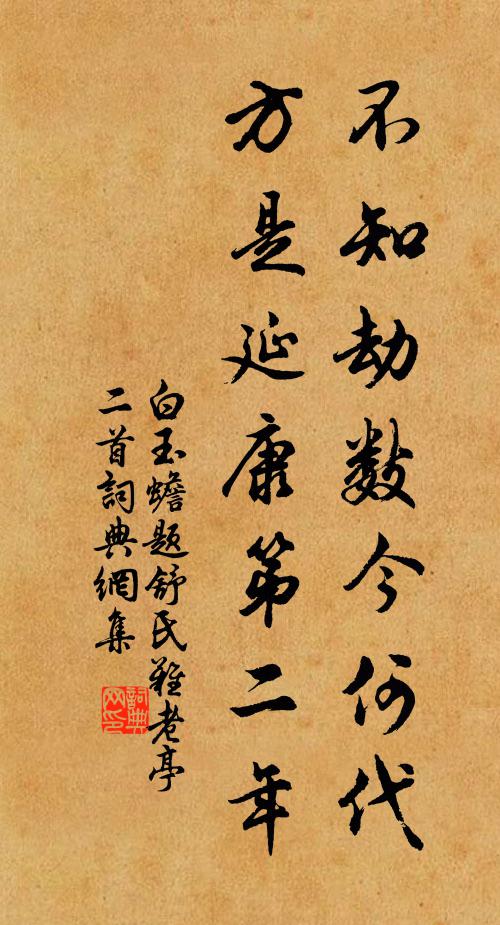 不知劫数今何代
方是延康第二年
白玉蟾題舒氏難老亭
二首詞典網集
詞典网印